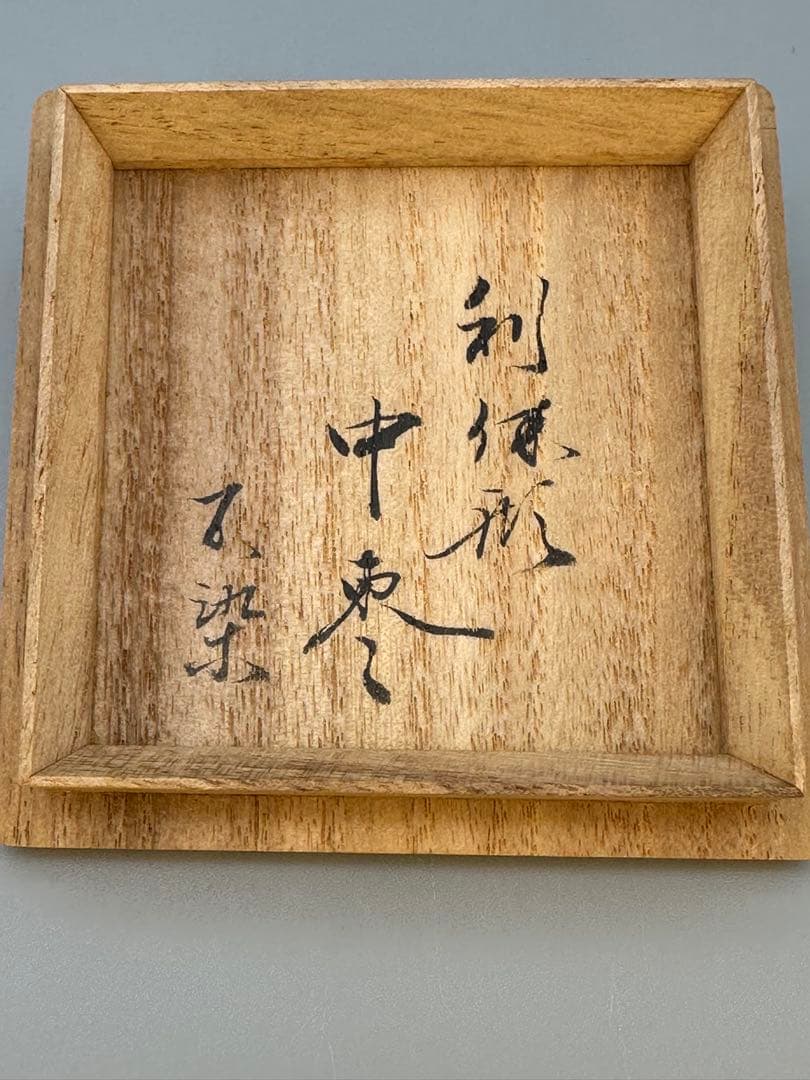 利休形
中棗
不染